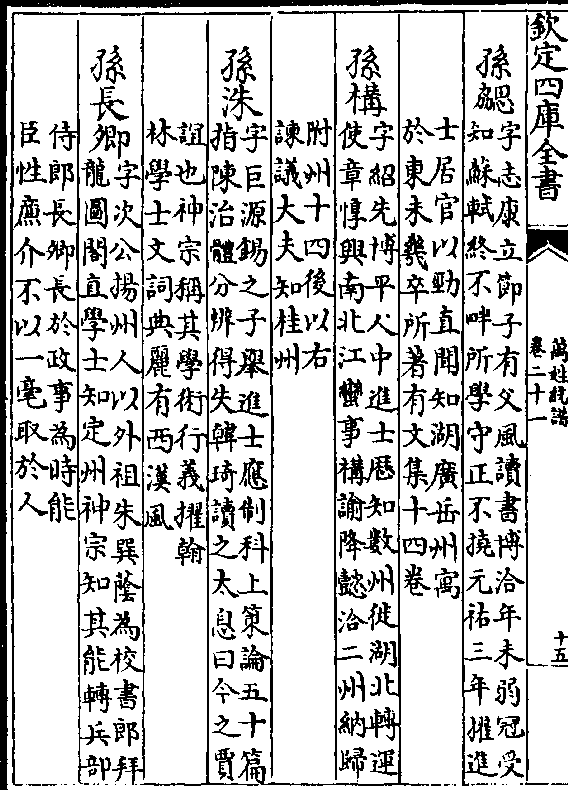 欽定四庫全書
萬姓統譜
卷二十一
十五
孫勰
字志康立節子有父風讀書博洽年未弱冠受
知蘇軾終不畔所學守正不撓元祐三年擢進
士居官以勁直聞知湖廣岳州寓
於東未幾卒所著有文集十四卷
孫構
字紹先博平人中進士歷知數州徙湖北轉運
使章惇興南北江蠻事構諭降懿洽二州納歸
附州十四後以右
諫議大夫知桂州
孫洙
字巨源錫之子舉進士應制科上策論五十篇
指陳治體分辨得失韓琦讀之太息曰今之賈
誼也神宗稱其學術行義擢翰
林學士文詞典麗有西漢風
孫長卿
字次公揚州人以外祖朱巽蔭為校書郎拜
龍圖閣直學士知定州神宗知其能轉兵部
侍郎長卿長於政事為時能
臣性廉介不以一毫取於人